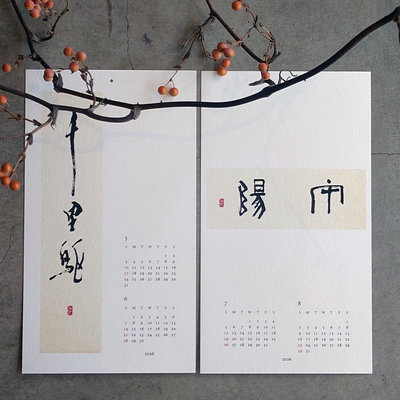 里
駆
5
S M T W T F S
1 2
3 4 5 6 7 8 9
10 11 12 13 14 15 16
17 18 19 20 21 22 23
24 25 26 27 28 29 30
31
6
S M T W T F S
1 2 3 4 5 6
7 8 9 10 11 12 13
14 15 16 17 18 19 20
21 22 23 24 25 26 27
28 29 30
2026
陽
7
S M T W T F S
1 2 3 4
5 6 7 8 9 10 11
12 13 14 15 16 17 18
19 20 21 22 23 24 25
26 27 28 29 30 31
8
S M T W T F S
1
2 3 4 5 6 7 8
9 10 11 12 13 14 15
16 17 18 19 20 21 22
23 24 25 26 27 28 29
30 31
2026